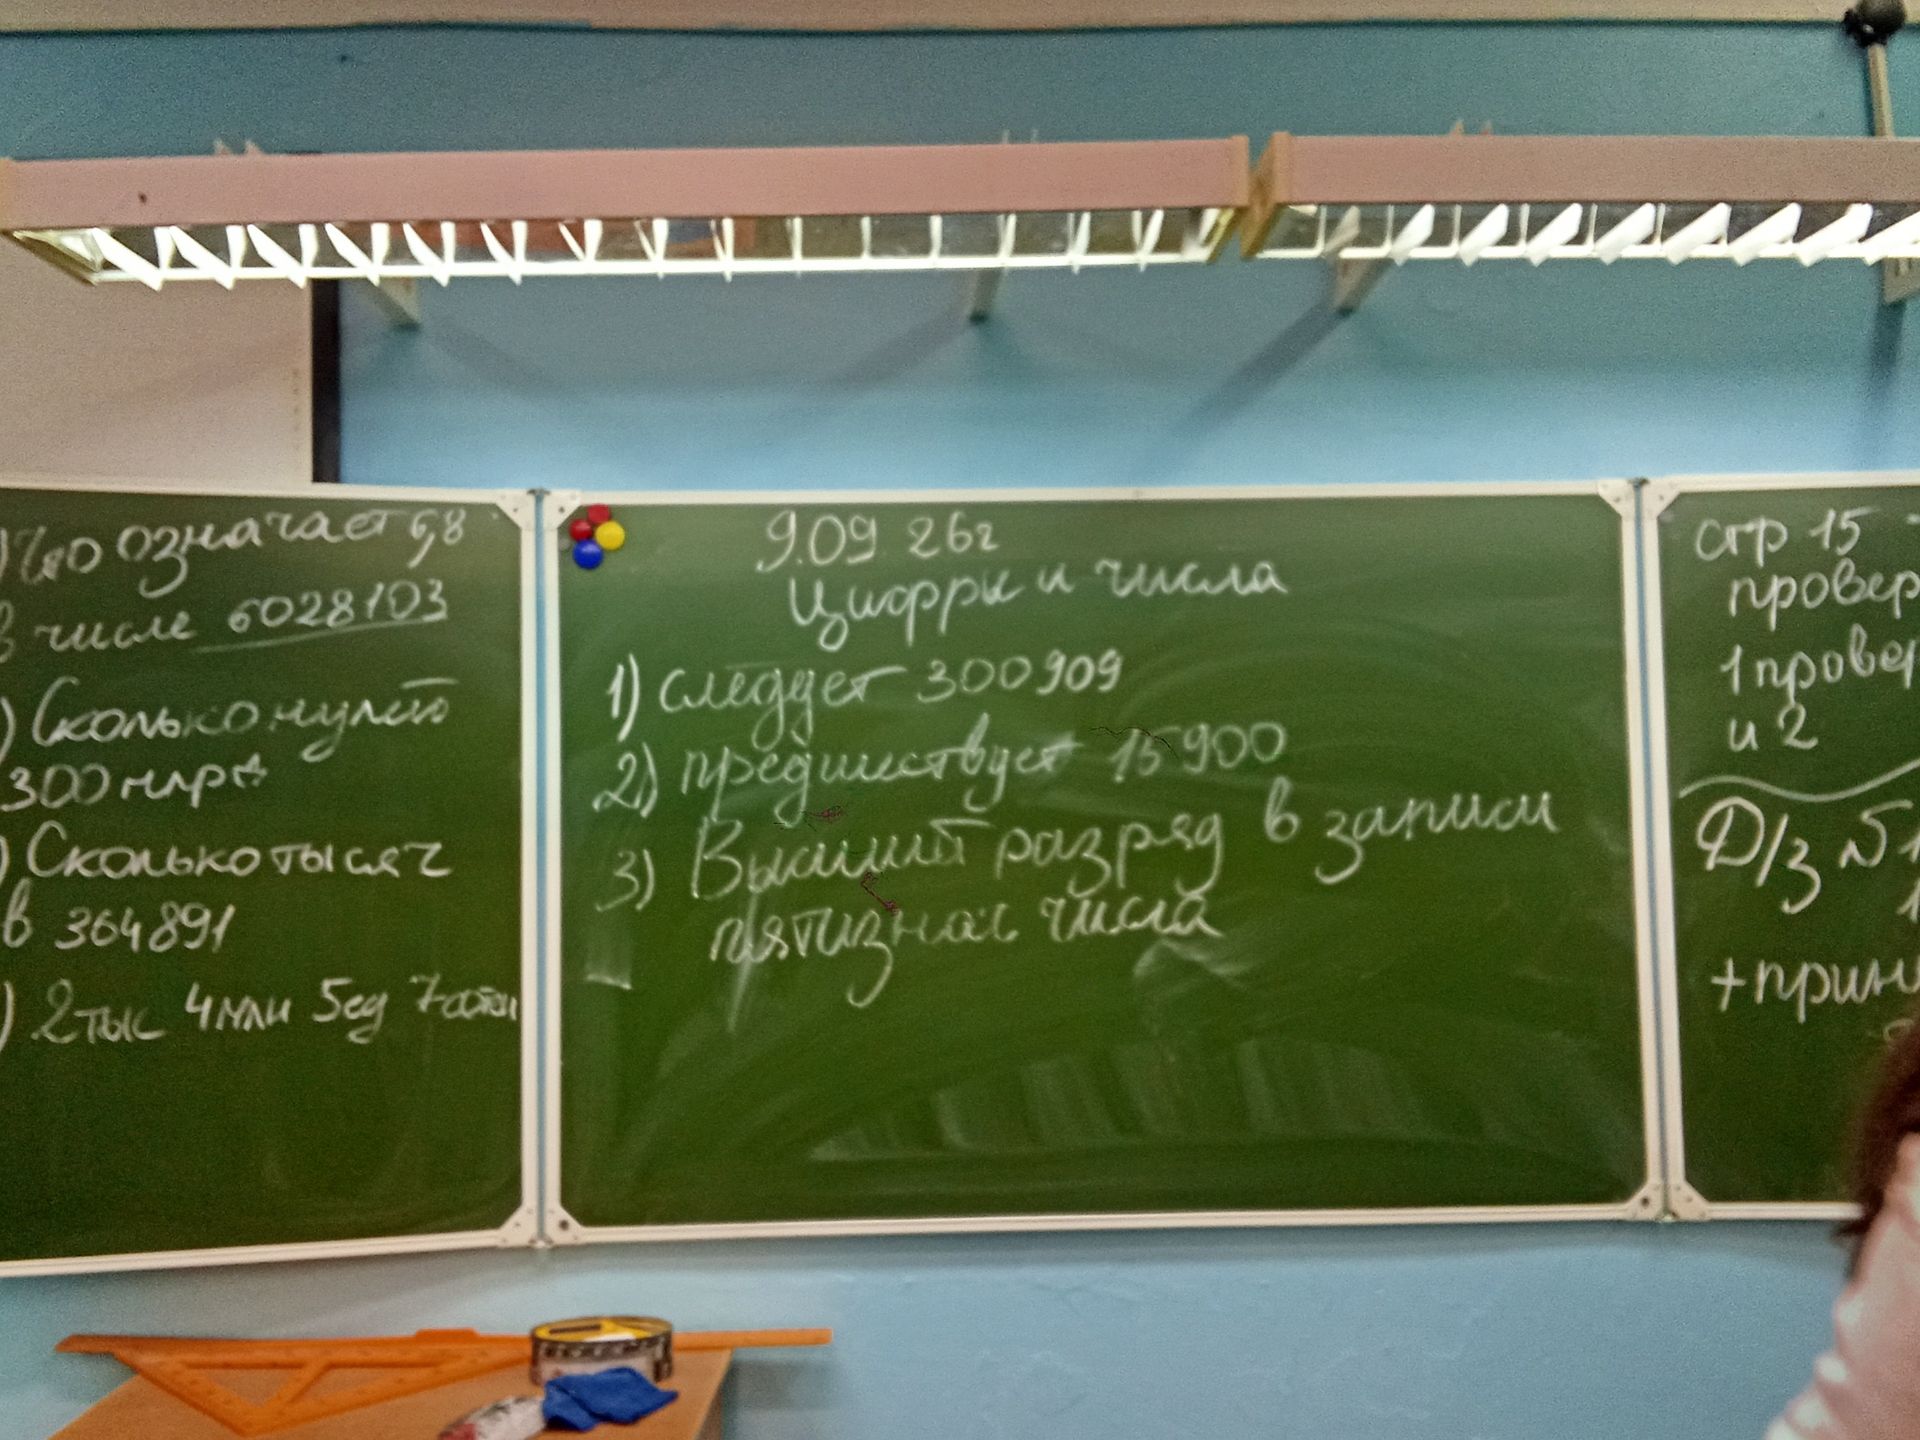 ) Что означает 6,8
в числе 6028103
) Сколько нулей
300 млрд
) Сколько тысяч
в 364891
) 2 тыс 4 млн 5 ед 7 сотен
9.09 26г
Цифры и числа
1) следует 300909
2) предшествует 15900
3) Высший разряд в записи
пятизнач числа
стр 15
провер
1 провер
и 2
Д/з №1
1
+ прин